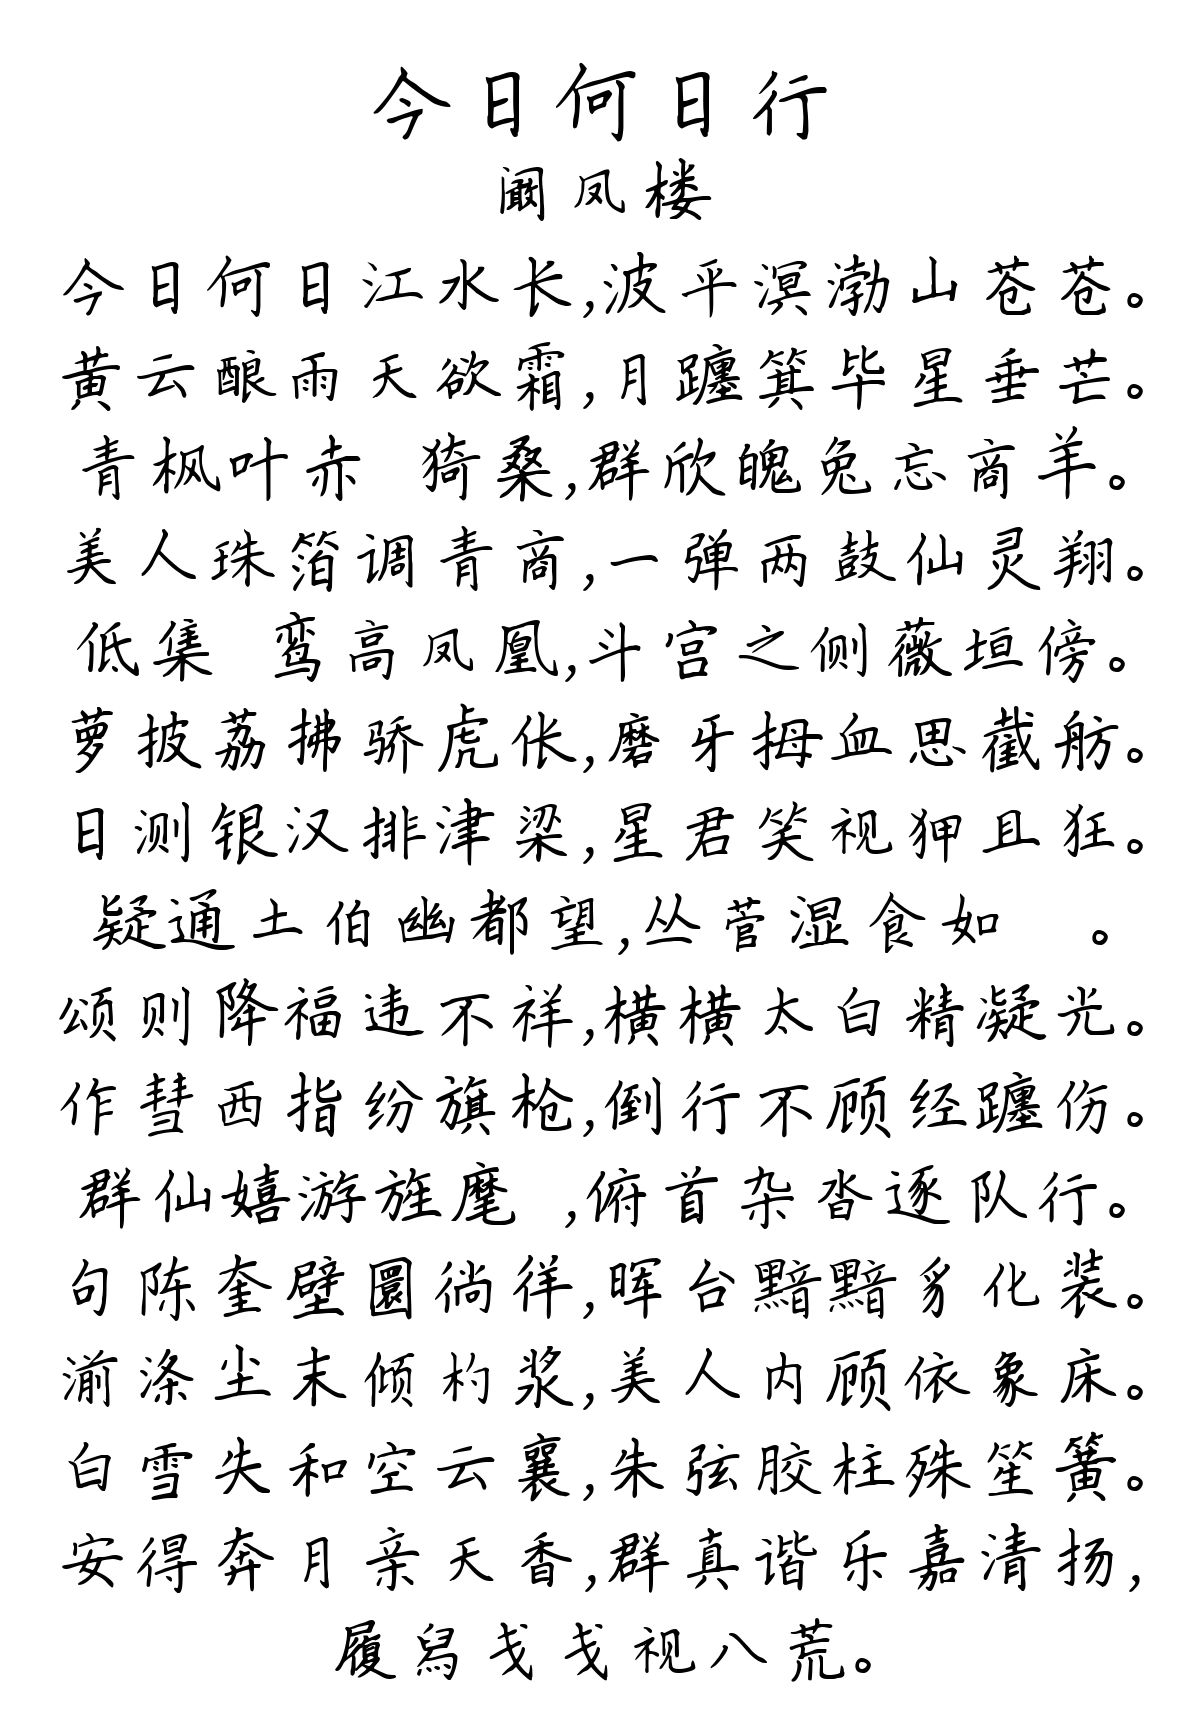 今日何日行
阚凤楼
今日何日江水长,波平溟渤山苍苍。
黄云酿雨天欲霜,月躔箕毕星垂芒。
青枫叶赤 猗桑,群欣魄兔忘商羊。
美人珠箔调青商,一弹两鼓仙灵翔。
低集 鸾高凤凰,斗宫之侧薇垣傍。
萝披荔拂骄虎伥,磨牙拇血思截舫。
日测银汉排津梁,星君笑视狎且狂。
疑通土伯幽都望,丛菅湿食如 。
颂则降福违不祥,横横太白精凝光。
作彗西指纷旗枪,倒行不顾经躔伤。
群仙嬉游旌麾 ,俯首杂沓逐队行。
句陈奎壁圜徜徉,晖台黯黯豸化装。
湔涤尘末倾杓浆,美人内顾依象床。
白雪失和空云襄,朱弦胶柱殊笙簧。
安得奔月亲天香,群真谐乐嘉清扬,
履舄戋戋视八荒。